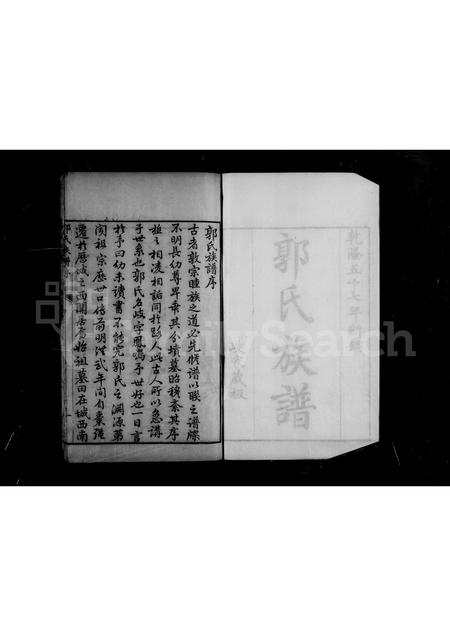 乾隆五十七年新鐫
郭氏族譜
藏板
郭氏族譜序
古者敦宗睦族之道必先修譜以聯之譜牒
不明長幼尊卑乖其分墳墓昭穆紊其序
相凌相詬同於路人此古人所以急講
乎世系也郭氏名岐字鳳鳴予世好也一日言
於予曰幼未讀書不能究郭氏之淵源第
聞祖宗歷世口傳前明洪武年間自棗強
遷於歷城之西關居焉始祖墓田在城西南
FamilySearch